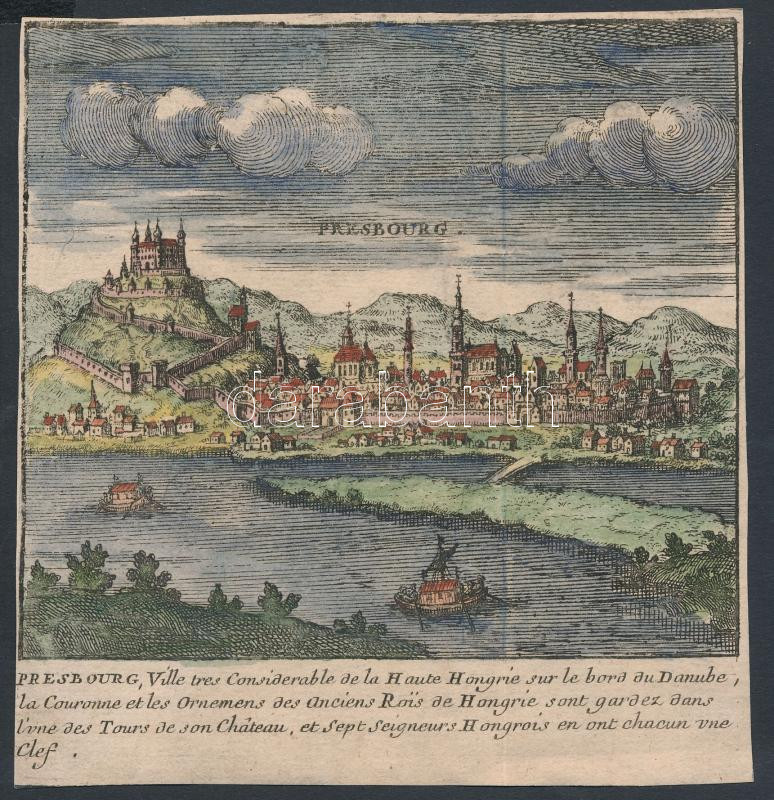 PRESBOURG.
darabanth
PRESBOURG, Ville tres Considerable de la Haute Hongrie sur le bord du Danube,
la Couronne et les Ornemens des Anciens Roïs de Hongrie sont gardez dans
l'vne des Tours de son Château, et Sept Seigneurs Hongrois en ont chacun vne
Clef.